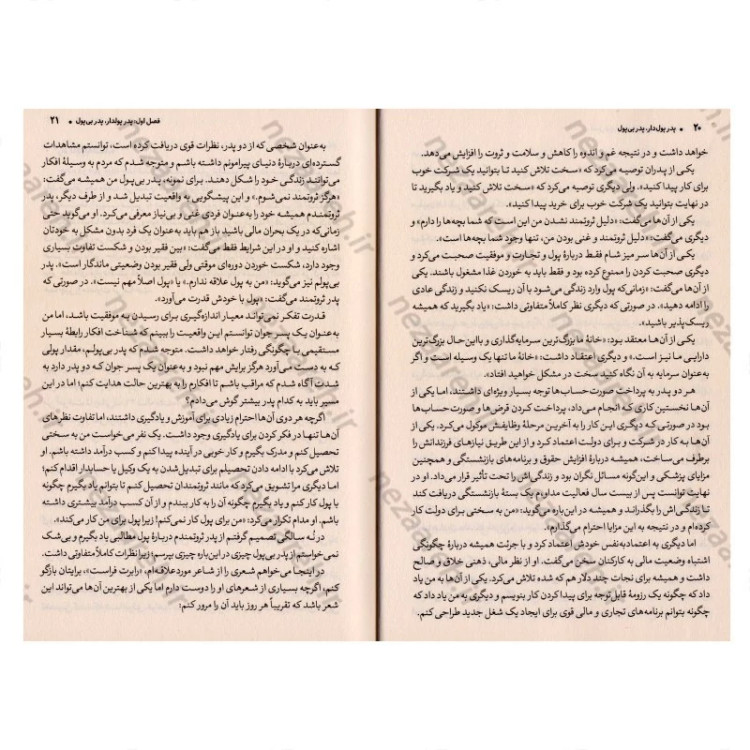 ۲۰ • پدر پول‌دار، پدر بی‌پول
خواهد داشت و در نتیجه غم و اندوه را کاهش و سلامت و ثروت را افزایش می‌دهد.
یکی از پدران توصیه می‌کرد که «سخت تلاش کنید تا بتوانید یک شرکت خوب
برای کار پیدا کنید». ولی دیگری توصیه می‌کرد که «سخت تلاش کنید و یاد بگیرید تا
در نهایت بتوانید یک شرکت خوب برای خرید پیدا کنید».
یکی از آن‌ها می‌گفت: «دلیل ثروتمند نشدن من این است که شما بچه‌ها را دارم» و
دیگری می‌گفت: «دلیل ثروتمند و غنی بودن من، تنها وجود شما بچه‌ها است».
یکی از آن‌ها سر میز شام فقط دربارهٔ پول و تجارت و موفقیت صحبت می‌کرد و
دیگری صحبت کردن را ممنوع کرده بود و فقط باید به خوردن غذا مشغول باشند. یکی
از آن‌ها می‌گفت: «زمانی‌که پول وارد زندگی می‌شود با آن ریسک نکنید و زندگی عادی
را ادامه دهید». در صورتی که دیگری نظر کاملاً متفاوتی داشت: «یاد بگیرید که همیشه
ریسک‌پذیر باشید».
یکی از آن‌ها معتقد بود: «خانهٔ ما بزرگ‌ترین سرمایه‌گذاری و بااین‌حال بزرگ‌ترین
دارایی ما نیز است.» و دیگری اعتقاد داشت: «خانهٔ ما تنها یک وسیله است و اگر
به‌عنوان سرمایه به آن نگاه کنید سخت در مشکل خواهید افتاد».
هر دو پدر به پرداخت صورت‌حساب‌ها توجه بسیار ویژه‌ای داشتند، اما یکی از
آن‌ها نخستین کاری که انجام می‌داد، پرداخت کردن قرض‌ها و صورت‌حساب‌ها
بود در صورتی‌که دیگری این کار را به آخرین مرحلهٔ وظایفش موکول می‌کرد. یکی از
آن‌ها به کار در شرکت و برای دولت اعتماد کرد و از این طریق نیازهای فرزندانش را
برطرف می‌ساخت، همیشه دربارهٔ افزایش حقوق و برنامه‌های بازنشستگی و همچنین
مزایای پزشکی و این‌گونه مسائل نگران بود و زندگی‌اش را تحت تأثیر قرار می‌داد. او در
نهایت توانست پس از بیست سال فعالیت مداوم یک بستهٔ بازنشستگی دریافت کند
تا زندگی‌اش را بگذراند و همیشه در این‌باره می‌گوید: «من به سختی برای دولت کار
کرده‌ام و در نتیجه به این مزایا احترام می‌گذارم».
اما دیگری به اعتمادبه‌نفس خودش اعتماد کرد و با جرئت همیشه دربارهٔ چگونگی
اشتباه وضعیت مالی به کارکنان سخن می‌گفت. او از نظر مالی، ذهنی خلاق و صالح
داشت و همیشه برای نجات چند دلار هم که شده تلاش می‌کرد. یکی از آن‌ها به من یاد
داد که چگونه یک رزومهٔ قابل‌توجه برای پیدا کردن کار بنویسم و دیگری به من یاد داد که
چگونه بتوانم برنامه‌های تجاری و مالی قوی برای ایجاد یک شغل جدید طراحی کنم.
فصل اول: پدر پولدار، پدر بی‌پول • ۲۱
به‌عنوان شخصی که از دو پدر، نظرات قوی دریافت کرده است، توانستم مشاهدات
گسترده‌ای دربارهٔ دنیای پیرامونم داشته باشم و متوجه شدم که مردم به وسیلهٔ افکار
می‌توانند زندگی خود را شکل دهند. برای نمونه، پدر بی‌پول من همیشه می‌گفت:
«هرگز ثروتمند نمی‌شوم.» و این پیشگویی به واقعیت تبدیل شد و از طرف دیگر، پدر
ثروتمندم همیشه خود را به‌عنوان فردی غنی و بی‌نیاز معرفی می‌کرد. او می‌گوید حتی
زمانی‌که در یک بحران مالی باشید باز هم باید به‌عنوان یک فرد بدون مشکل به خودتان
اشاره کنید و او در این شرایط فقط می‌گفت: «بین فقیر بودن و شکست تفاوت بسیاری
وجود دارد، شکست خوردن دوره‌ای موقتی ولی فقیر بودن وضعیتی ماندگار است». پدر
بی‌پولم نیز می‌گوید: «من به پول علاقه ندارم.» یا «پول اصلاً مهم نیست». در صورتی که
پدر ثروتمند می‌گفت: «پول با خودش قدرت می‌آورد».
قدرت تفکر نمی‌تواند معیار اندازه‌گیری برای رسیدن به موفقیت باشد، اما من
به‌عنوان یک پسر جوان توانستم این واقعیت را ببینم که شناخت افکار رابطهٔ بسیار
مستقیمی با چگونگی رفتار خواهد داشت. متوجه شدم که پدر بی‌پولم، مقدار پولی
که به دست می‌آورد هرگز برایش مهم نبود و به‌عنوان یک پسر جوان که دو پدر دارد به
شدت آگاه شدم که مراقب باشم تا افکارم را به بهترین حالت هدایت کنم؛ اما در این
مسیر باید به کدام پدر بیشتر گوش می‌دادم؟
اگرچه هر دوی آن‌ها احترام زیادی برای آموزش و یادگیری داشتند، اما تفاوت نظرهای
آن‌ها تنها در فکر کردن برای یادگیری وجود داشت. یک نفر می‌خواست من به سختی
تحصیل کنم و مدرک بگیرم و کار خوبی در آینده پیدا کنم و کسب درآمد داشته باشم.
تلاش می‌کرد با ادامه دادن تحصیلم برای تبدیل‌شدن به یک وکیل یا حسابدار اقدام کنم؛
اما دیگری مرا تشویق می‌کرد که مانند ثروتمندان تحصیل کنم تا بتوانم یاد بگیرم چگونه
با پول کار کنم و یاد بگیرم چگونه آن را به کار ببندم و از آن کسب درآمد بیشتری داشته
باشم. او مدام تکرار می‌کرد: «من برای پول کار نمی‌کنم! زیرا پول برای من کار می‌کند».
در نُه سالگی تصمیم گرفتم از پدر ثروتمندم دربارهٔ پول مطالبی یاد بگیرم و بی‌شک
نمی‌خواستم از پدر بی‌پول چیزی در این‌باره چیزی بپرسم؛ زیرا نظرات کاملاً متفاوتی داشت.
در اینجا می‌خواهم شعری را از شاعر موردعلاقه‌ام، «رابرت فراست»، برایتان بازگو
کنم، اگرچه بسیاری از شعرهای او را دوست دارم اما یکی از بهترین آن‌ها می‌تواند این
شعر باشد که تقریباً هر روز باید آن را مرور کنم:
nezaareh.ir